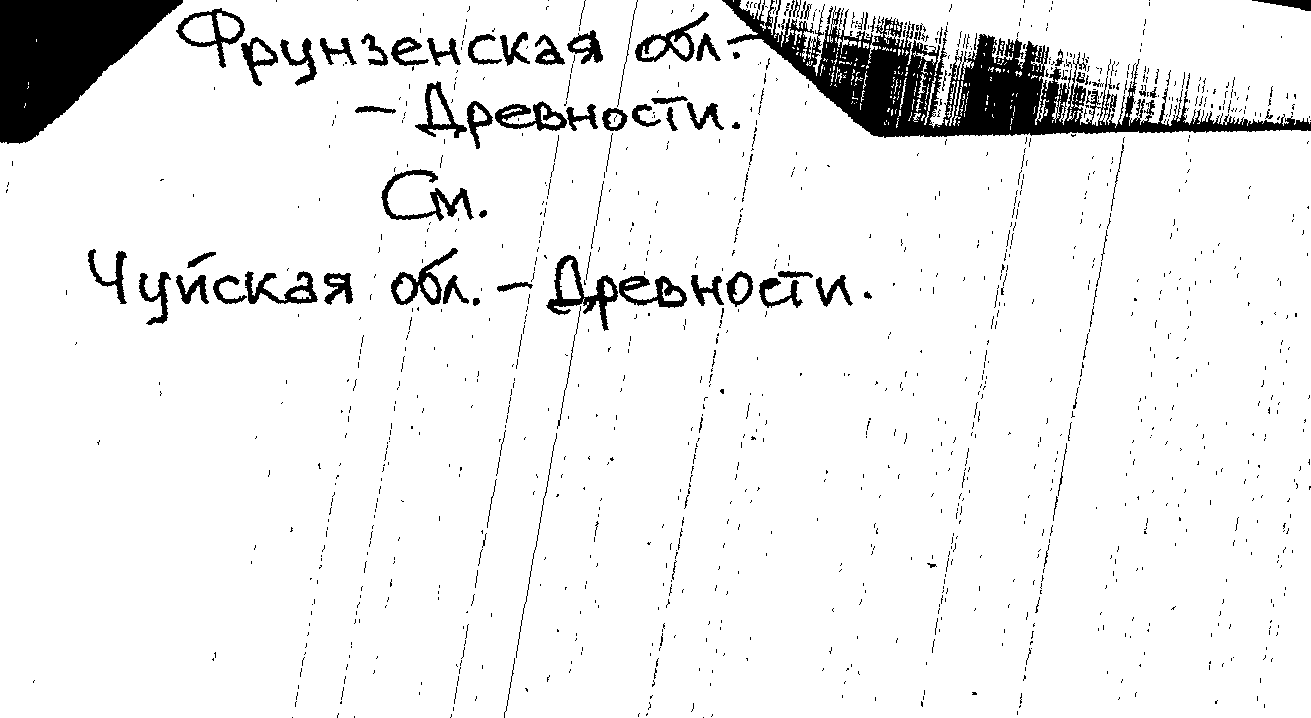 Фрунзенская обл.-
- Древности.
См.
Чуйская обл. - Древности.